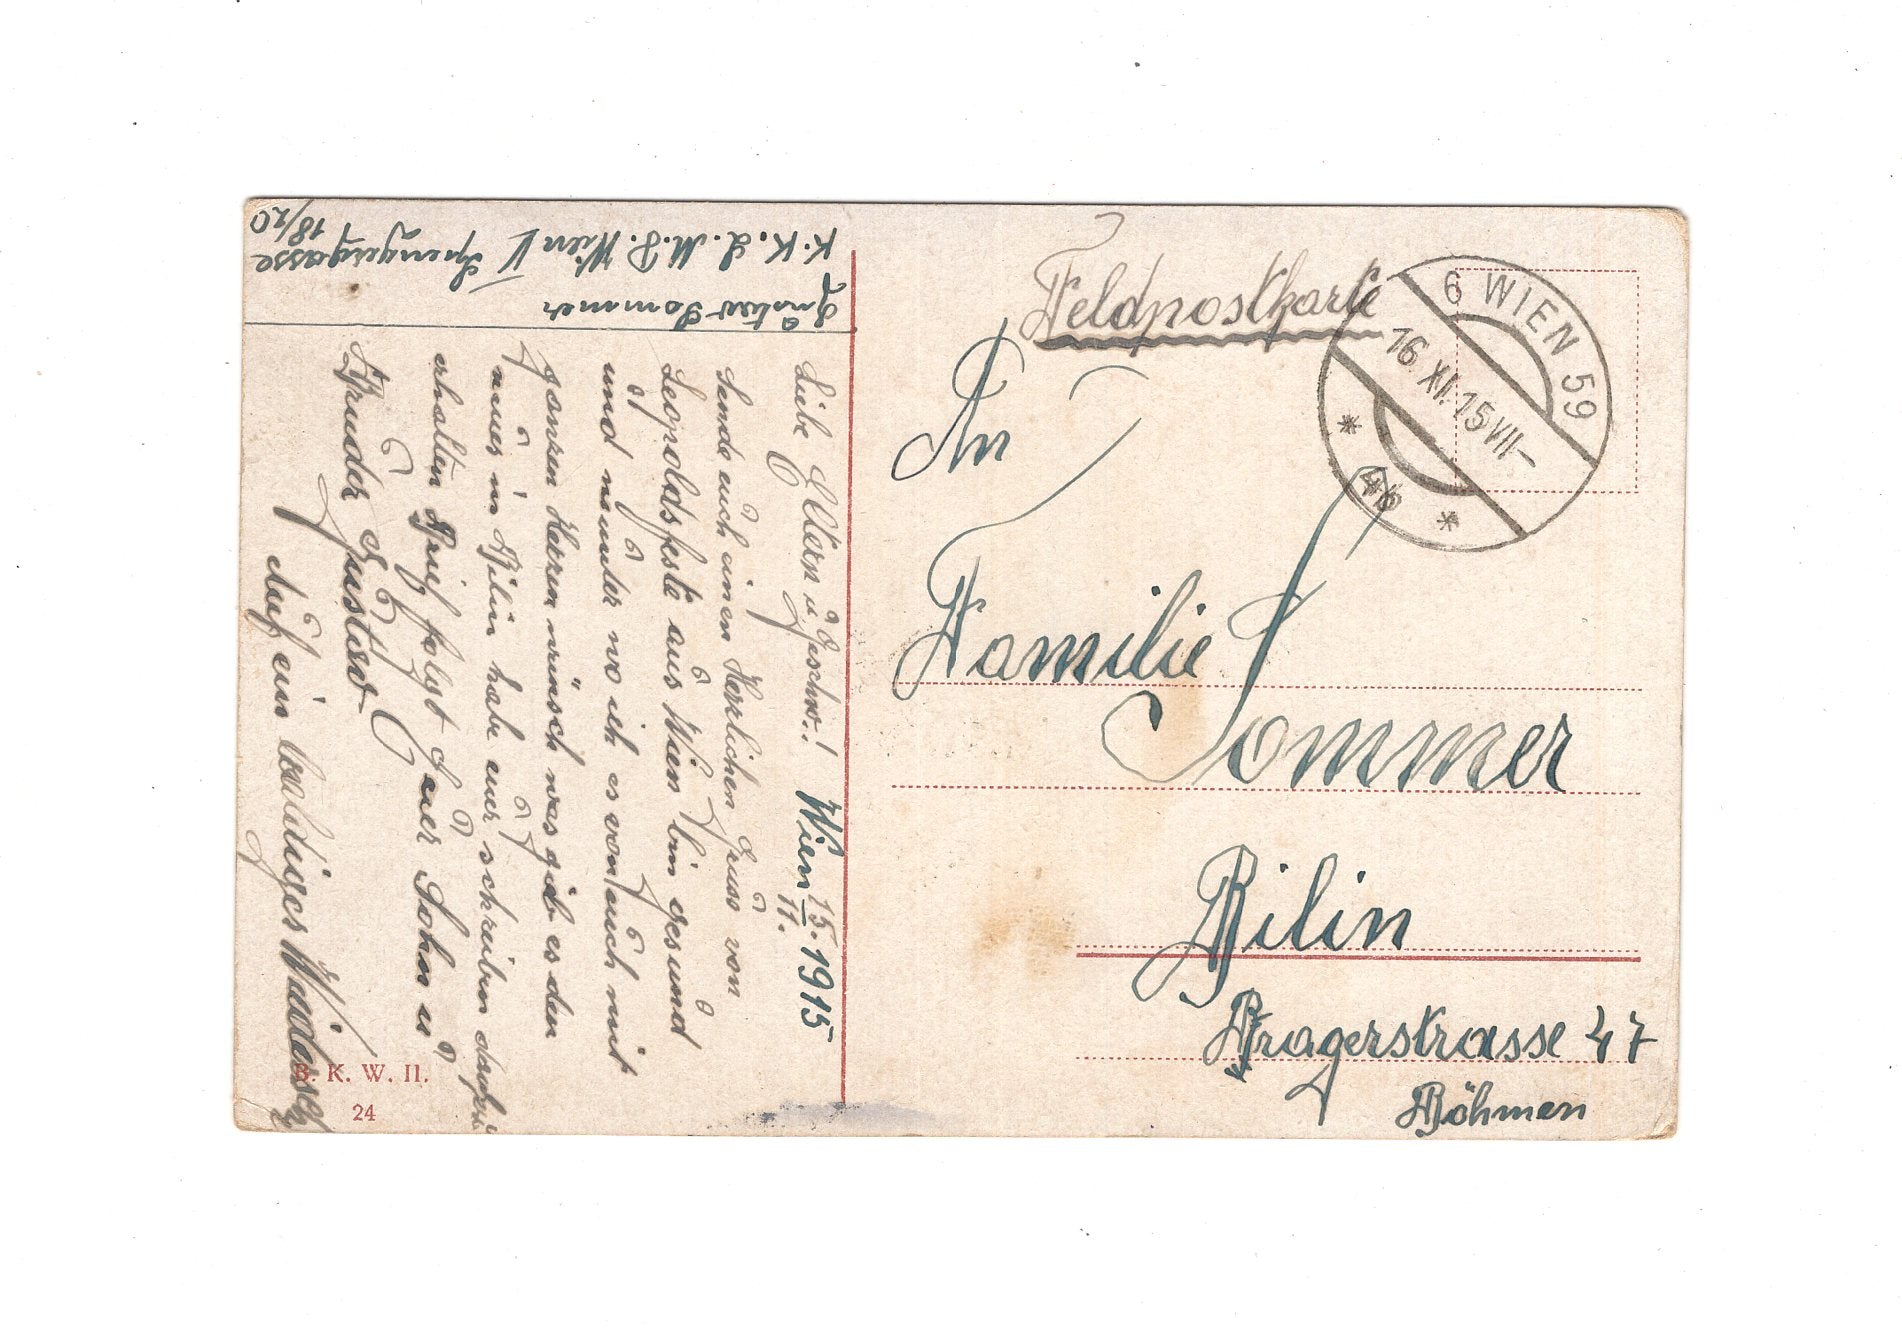 Gustav Sommer
K. K. L. M. P. Wien V Spengergasse
18/20
Liebe Eltern u. Geschw.! Wien 15. 1915
11.
Sende euch einen Herzlichen Gruss vom
Leopoldsfeste aus Wien bin gesund
und munter wo ich es von euch mit
ganzen Herzen wünsch was gib es den
neues in Bilin habe euer schreiben
erhalten Brief folgt Euer Sohn u
Bruder Gustav
Auf ein baldiges Wiedersehn
B. K. W. II.
24
Feldpostkarte
6 WIEN 59
16. XI. 15 VII-
* 4b *
An
Familie
Sommer
Bilin
Pragerstrasse 47
Böhmen